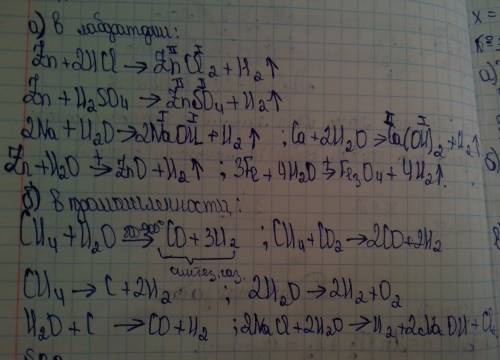 а) в лаборатории:
Zn+2HCl → ZnCl₂ + H₂↑
Zn+H₂SO₄ → ZnSO₄ + H₂↑
2Na + H₂O → 2NaOH + H₂↑ ; Ca+2H₂O → Ca(OH)₂ + H₂↑
Zn+H₂O →(t) ZnO + H₂↑ ; 3Fe + 4H₂O →(t) Fe₃O₄ + 4H₂↑.
б) в промышленности:
CH₄ + H₂O → CO + 3H₂ ; CH₄ + CO₂ → 2CO + 2H₂
синтез. газ.
CH₄ → C + 2H₂ ; 2H₂O → 2H₂ + O₂
H₂O + C → CO + H₂ ; 2NaCl + 2H₂O → H₂ + 2NaOH + Cl